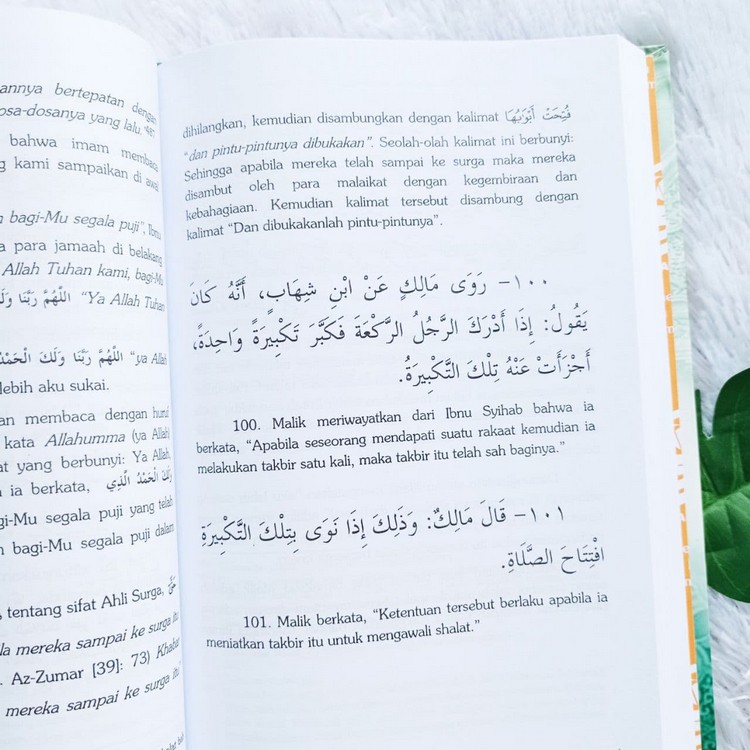 annya bertepatan dengan
osa-dosanya yang lalu."
bahwa imam membaca
g kami sampaikan di awal
bagi-Mu segala puji", Ibnu
a para jamaah di belakang
Allah Tuhan kami, bagi-Mu
اللَّهُمَّ رَبَّنَا وَلَكَ "Ya Allah Tuhan
اللَّهُمَّ رَبَّنَا وَلَكَ الْحَمْدُ "ya Allah
lebih aku sukai.
an membaca dengan huruf
kata Allahumma (ya Allah)
at yang berbunyi: Ya Allah,
n ia berkata, وَلَكَ الْحَمْدُ الَّذِي
gi-Mu segala puji yang telah
n bagi-Mu segala puji dalam
s tentang sifat Ahli Surga,
la mereka sampai ke surga itu
. Az-Zumar [39]: 73)
mereka sampai ke surga itu
dihilangkan, kemudian disambungkan dengan kalimat فُتِحَتْ أَبْوَابُهَا
"dan pintu-pintunya dibukakan". Seolah-olah kalimat ini berbunyi:
Sehingga apabila mereka telah sampai ke surga maka mereka
disambut oleh para malaikat dengan kegembiraan dan
kebahagiaan. Kemudian kalimat tersebut disambung dengan
kalimat "Dan dibukakanlah pintu-pintunya".
١٠٠- رَوَى مَالِكٍ عَنْ ابْنِ شِهَابٍ، أَنَّهُ كَانَ
يَقُولُ: إِذَا أَدْرَكَ الرَّجُلُ الرَّكْعَةَ فَكَبَّرَ تَكْبِيرَةً وَاحِدَةً،
أَجْزَأَتْ عَنْهُ تِلْكَ التَّكْبِيرَةُ.
100. Malik meriwayatkan dari Ibnu Syihab bahwa ia
berkata, "Apabila seseorang mendapati suatu rakaat kemudian ia
melakukan takbir satu kali, maka takbir itu telah sah baginya."
١٠١- قَالَ مَالِكٌ: وَذَلِكَ إِذَا نَوَى بِتِلْكَ التَّكْبِيرَةِ
افْتِتَاحَ الصَّلَاةِ.
101. Malik berkata, "Ketentuan tersebut berlaku apabila ia
meniatkan takbir itu untuk mengawali shalat."